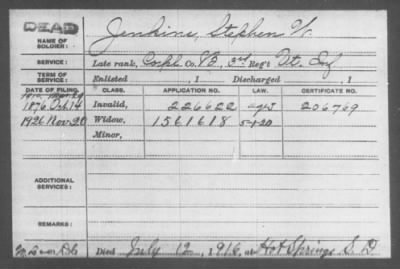 DEAD
NAME OF SOLDIER: Jenkins, Stephen W.
SERVICE: Late rank, Corpl Co. B, 3rd Reg't Inf
TERM OF SERVICE: Enlisted , 1 Discharged , 1
DATE OF FILING. CLASS. APPLICATION NO. LAW. CERTIFICATE NO.
1876 Oct 14 Invalid, 226622 206769
1926 Nov 20 Widow, 1561618 5-1-20
Minor,
ADDITIONAL SERVICES:
REMARKS:
Died July 12, 1916, at Hot Springs S. D.